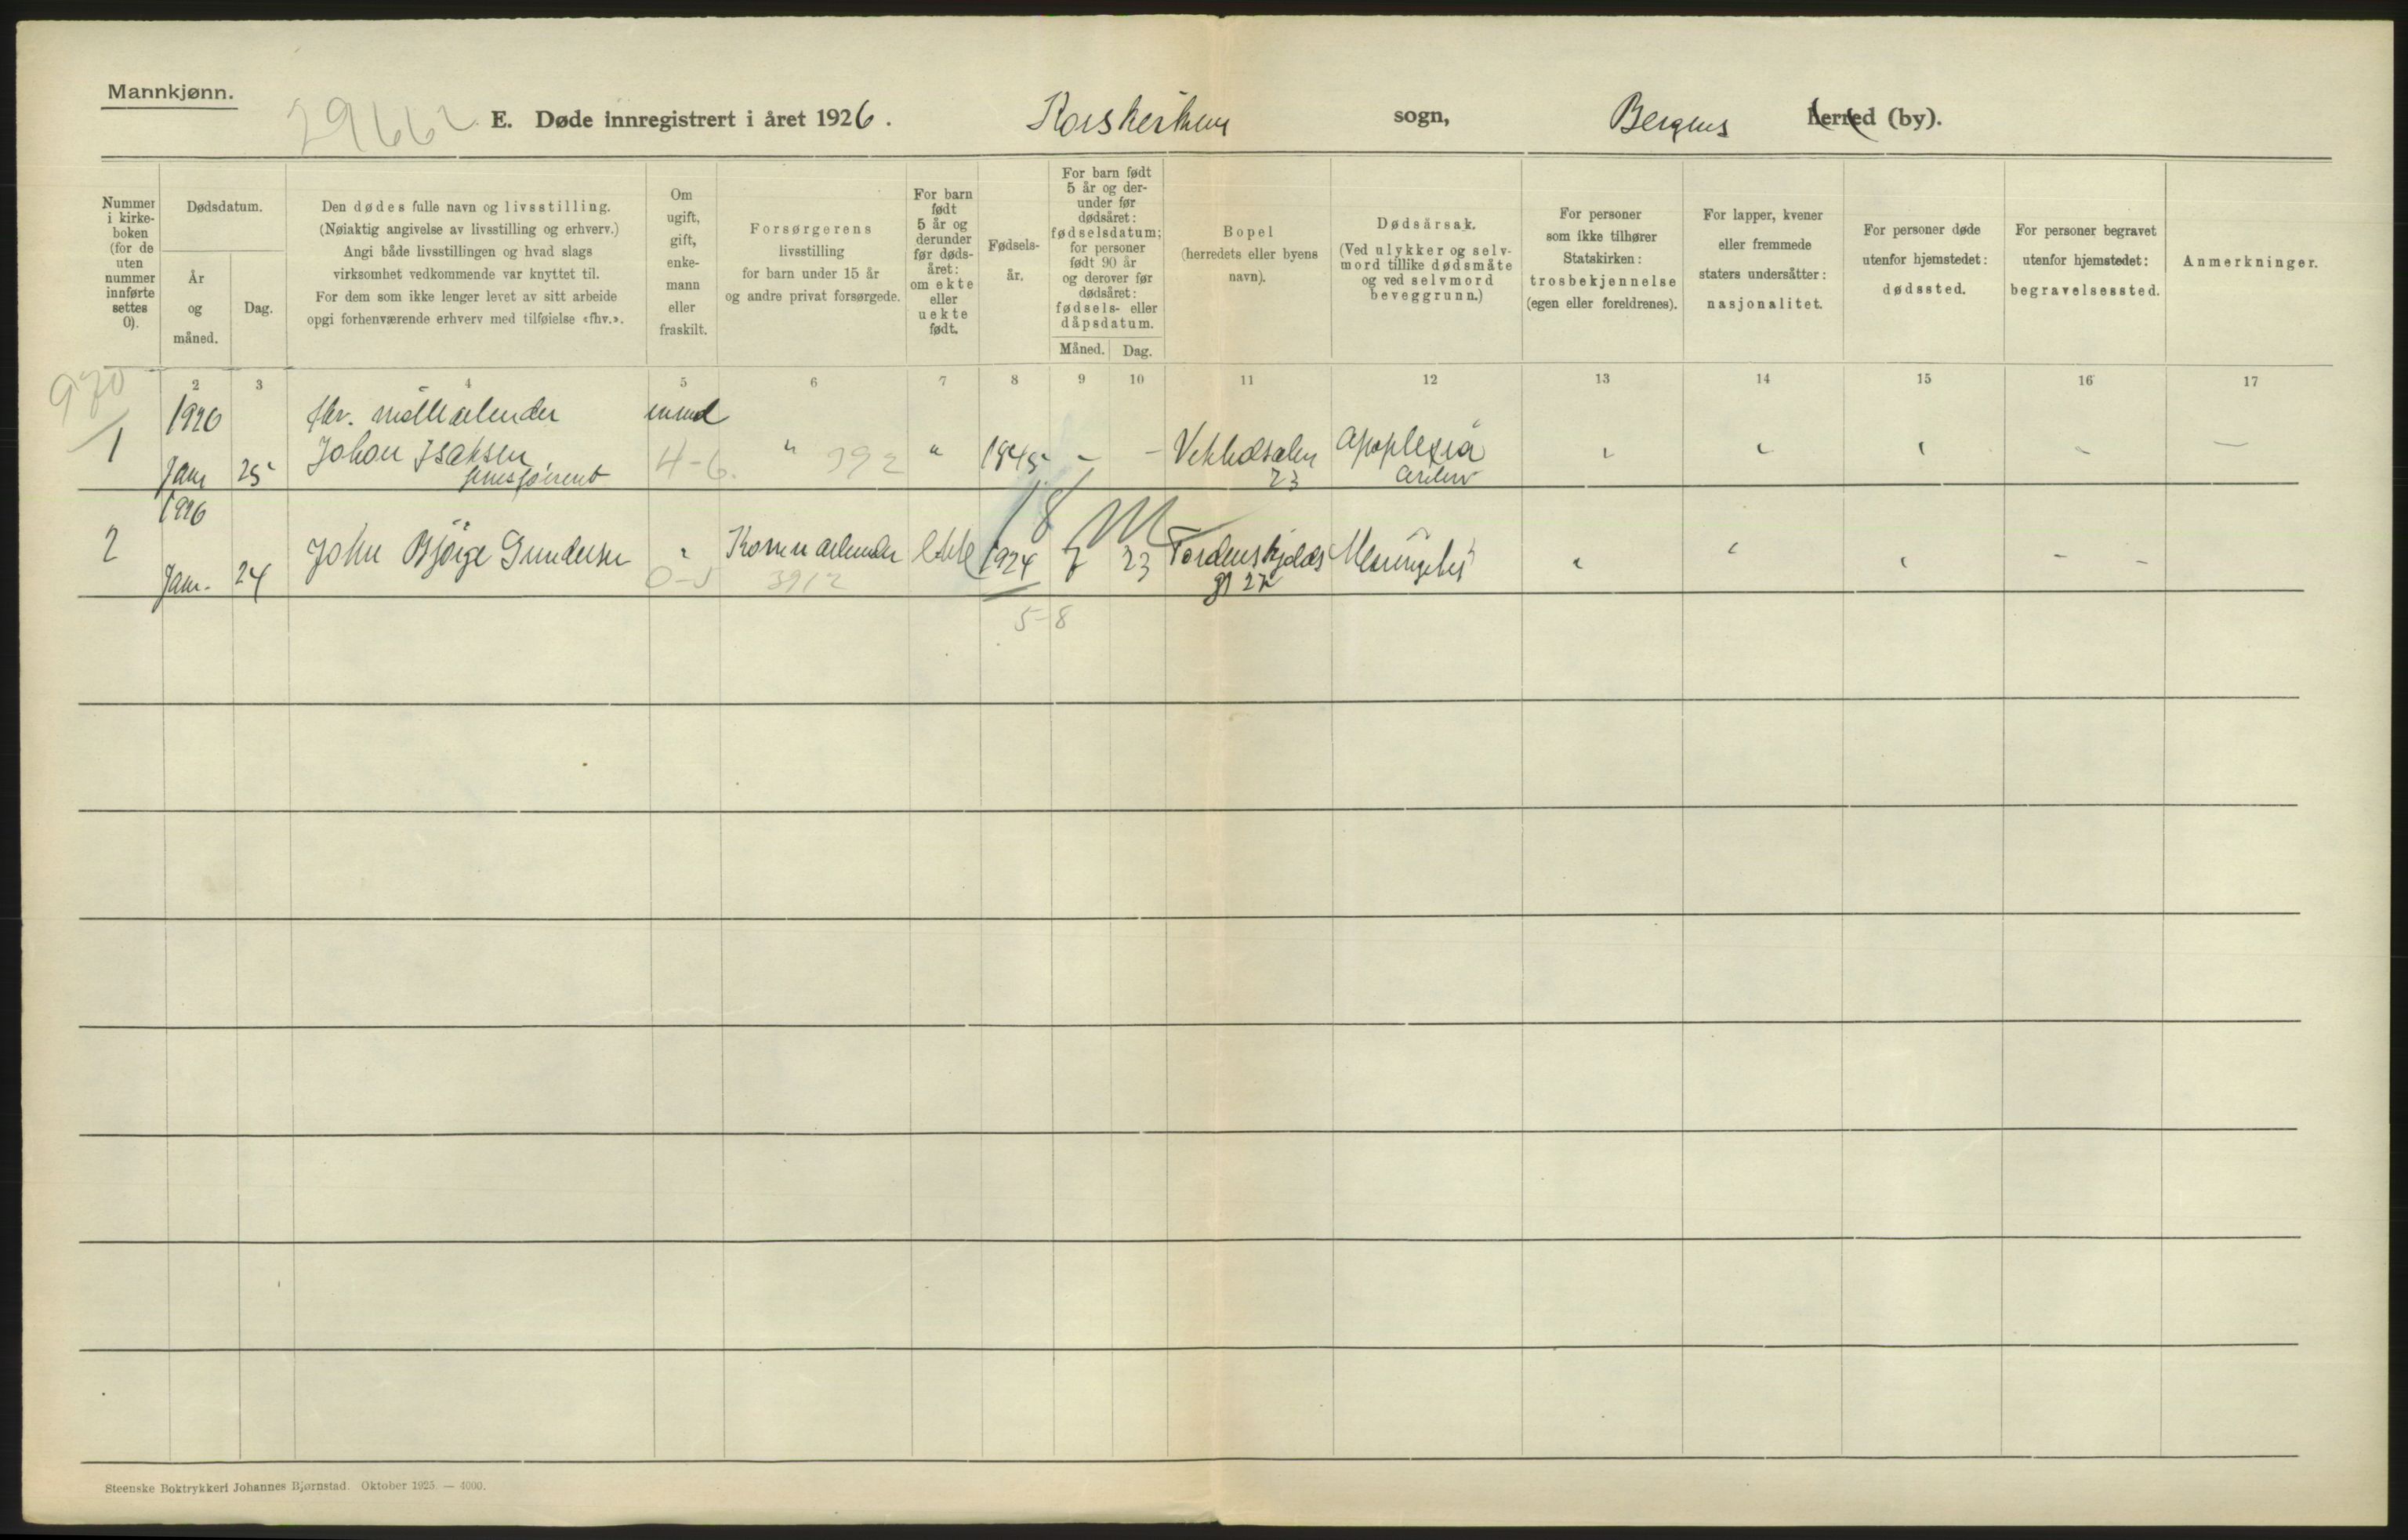 Mannkjønn.
29662 E. Døde innregistrert i året 1926. Korskirken sogn, Bergens herred (by).
Nummer i kirke-boken (for de uten nummer innførte settes 0).
Dødsdatum.
År og måned.
Dag.
Den dødes fulle navn og livsstilling.
(Nøiaktig angivelse av livsstilling og erhverv.)
Angi både livsstillingen og hvad slags
virksomhet vedkommende var knyttet til.
For dem som ikke lenger levet av sitt arbeide
opgi forhenværende erhverv med tilføielse «fhv.».
Om ugift, gift, enke-mann eller fraskilt.
Forsørgerens
livsstilling
for barn under 15 år
og andre privat forsørgede.
For barn født 5 år og derunder før døds-året: om ekte eller uekte født.
Fødsels-år.
For barn født 5 år og der-under før dødsåret: fødselsdatum; for personer født 90 år og derover før dødsåret: fødsels- eller dåpsdatum.
Måned. Dag.
Bopel
(herredets eller byens
navn).
Dødsårsak.
(Ved ulykker og selv-
mord tillike dødsmåte
og ved selvmord
beveggrunn.)
For personer
som ikke tilhører
Statskirken:
trosbekjennelse
(egen eller foreldrenes).
For lapper, kvener
eller fremmede
staters undersåtter:
nasjonalitet.
For personer døde
utenfor hjemstedet:
dødssted.
For personer begravet
utenfor hjemstedet:
begravelsessted.
Anmerkninger.
970
2 3 4 5 6 7 8 9 10 11 12 13 14 15 16 17
1926 fhv. møllearbeider
1 Johan Isaksen 4-6. " 392 " 1845 - - Apoplexia
Jan 25 23
1926
2 John Bjørge Gundersen " ekte 1924 7 23 Tordenskjolds Meningitis
Jan. 24 0-5 3912 gt 27
18 M
5-8
Steenske Boktrykkeri Johannes Bjørnstad. Oktober 1925. — 4000.